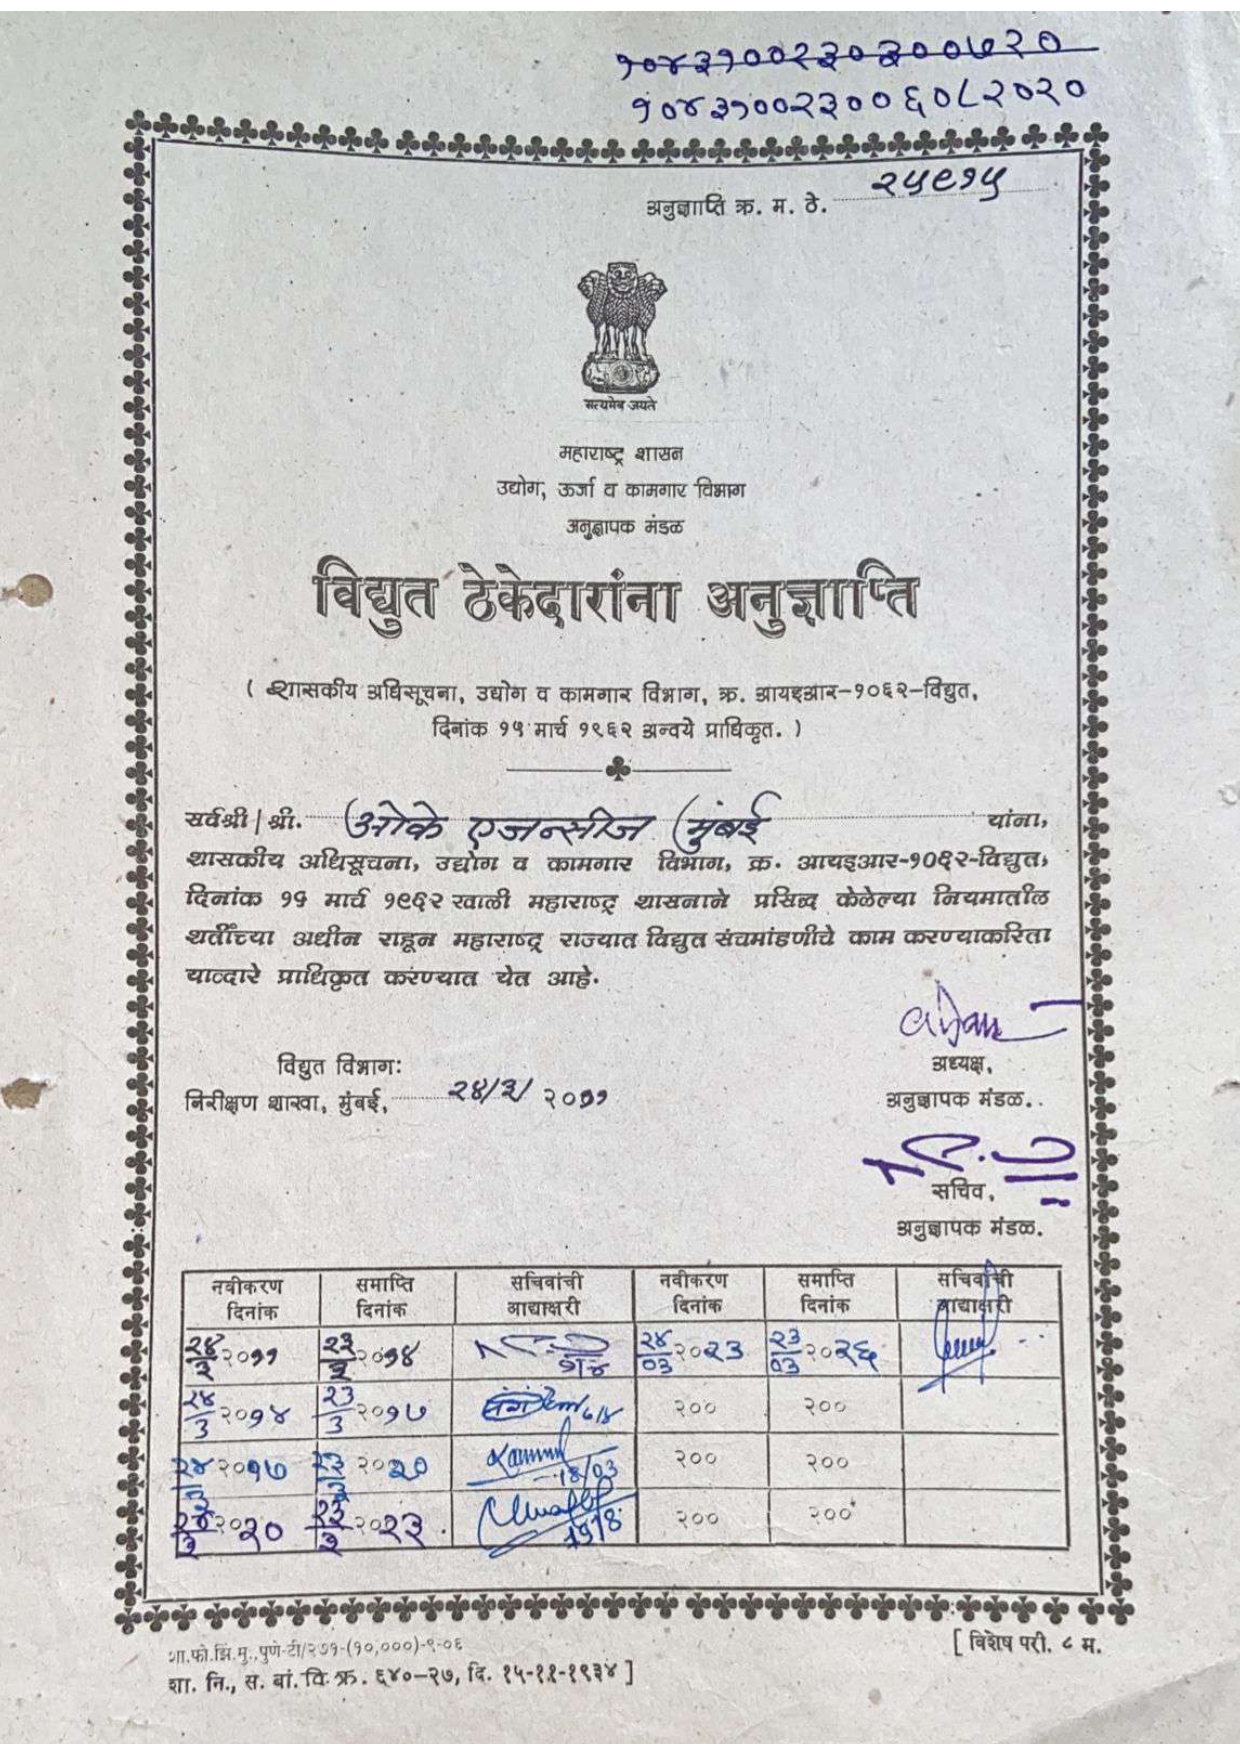 १०४३१००२३०३००७२०
१०४३१००२३००६०८२०२०
अनुज्ञाप्ति क्र. म. ठे. २५९१५
सत्यमेव जयते
महाराष्ट्र शासन
उद्योग, ऊर्जा व कामगार विभाग
अनुज्ञापक मंडळ
विद्युत ठेकेदारांना अनुज्ञाप्ति
( शासकीय अधिसूचना, उद्योग व कामगार विभाग, क्र. आयइआर-१०६२-विद्युत,
दिनांक १५ मार्च १९६२ अन्वये प्राधिकृत. )
सर्वश्री/श्री. ओके एजन्सीज (मुंबई यांना,
शासकीय अधिसूचना, उद्योग व कामगार विभाग, क्र. आयइआर-१०६२-विद्युत,
दिनांक १५ मार्च १९६२ खाली महाराष्ट्र शासनाने प्रसिद्ध केलेल्या नियमातील
शर्तीच्या अधीन राहून महाराष्ट्र राज्यात विद्युत संचमांडणीचे काम करण्याकरिता
याव्दारे प्राधिकृत करण्यात येत आहे.
अध्यक्ष,
विद्युत विभागः
निरीक्षण शाखा, मुंबई, २४/३/२०११
अनुज्ञापक मंडळ.
सचिव,
अनुज्ञापक मंडळ.
नवीकरण दिनांक समाप्ति दिनांक सचिवांची आद्याक्षरी नवीकरण दिनांक समाप्ति दिनांक सचिवांची आद्याक्षरी
२४/३ २०११ २३/३ २०१४ २४/03 २०२३ २३/03 २०२६
२४/3 २०१४ २३/3 २०१७ २०० २००
२४/३ २०१७ २३/३ २०२० 18/03 २०० २००
२४/३ २०२० २३/३ २०२३ २०० २००
शा.फो.झिं.मु.,पुणे-टी/२७१-(१०,०००)-९-०६
[ विशेष परी. ८ म.
शा. नि., स. बां. वि. क्र. ६४०-२७, दि. १५-११-१९३४ ]